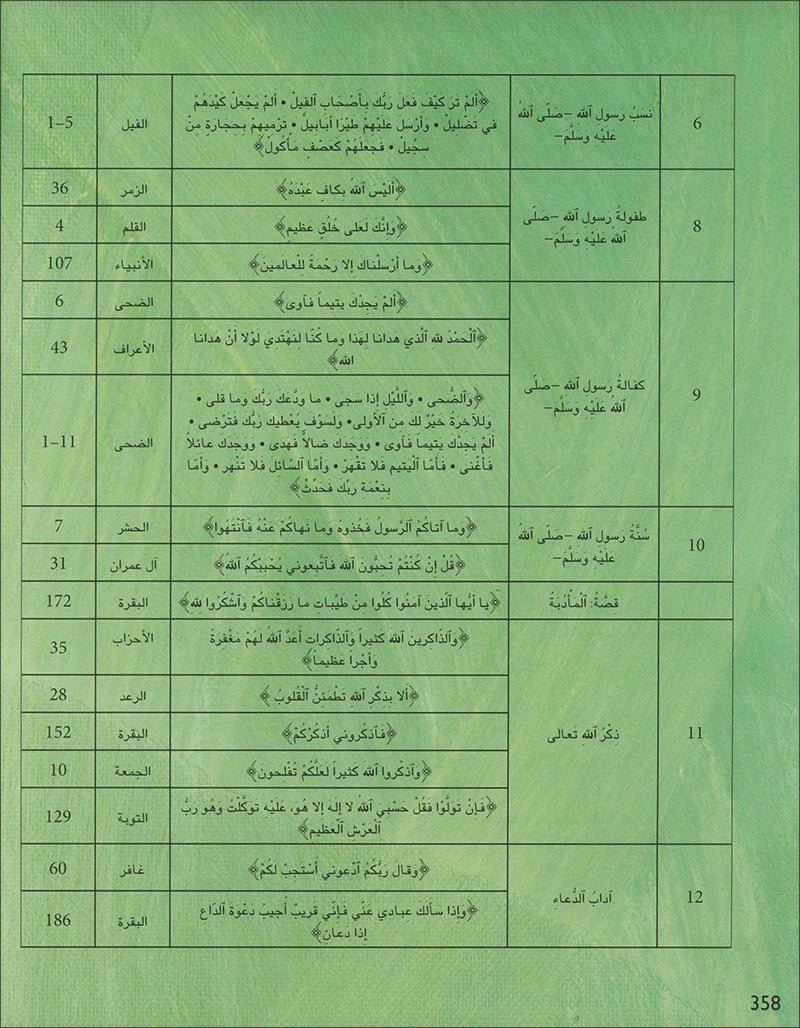 6
نَسَبُ رَسول ٱللهِ –صَلّى ٱللهُ
عَلَيْهِ وَسَلَّمَ–
﴿أَلَمْ تَرَ كَيْفَ فَعَلَ رَبُّكَ بِأَصْحابِ ٱلفيلِ • أَلَمْ يَجْعَلْ كَيْدَهُمْ
في تَضْليلٍ • وَأَرْسَلَ عَلَيْهِمْ طَيْرًا أَبابيلَ • تَرْميهِمْ بِحِجارَةٍ مِنْ
سِجّيلٍ • فَجَعَلَهُمْ كَعَصْفٍ مَأْكولٍ﴾
الفيل
1–5
8
طفولةُ رسول ٱلله –صَلّى
ٱللهُ عَلَيْهِ وَسَلَّمَ–
﴿أَلَيْسَ ٱللهُ بِكافٍ عَبْدَهُ﴾
الزمر
36
﴿وَإِنَّكَ لَعَلى خُلُقٍ عَظيمٍ﴾
القلم
4
﴿وَما أَرْسَلْناكَ إِلا رَحْمَةً لِلْعالَمينَ﴾
الأنبياء
107
9
كفالةُ رسول ٱلله –صَلّى
ٱللهُ عَلَيْهِ وَسَلَّمَ–
﴿أَلَمْ يَجِدْكَ يَتيماً فَآوى﴾
الضحى
6
﴿ٱلْحَمْدُ لله ٱلَّذي هَدانا لِهَذا وَما كُنّا لِنَهْتَدِيَ لَوْلا أَنْ هَدانا
الله﴾
الأعراف
43
﴿وَٱلضُّحى • وَٱللَّيْلِ إِذا سَجى • ما وَدَّعَكَ رَبُّكَ وَما قَلى •
وَلَلآخِرَةُ خَيْرٌ لَكَ مِنَ ٱلأولى• وَلَسَوْفَ يُعْطيكَ رَبُّكَ فَتَرْضى •
أَلَمْ يَجِدْكَ يَتيماً فَآوى • وَوَجَدَكَ ضالاًّ فَهَدى • وَوَجَدَكَ عائلاً
فَأَغْنى • فَأَمّا ٱلْيَتيمَ فَلا تَقْهَرْ • وَأَمّا ٱلسّائلَ فَلا تَنْهَر • وَأَمّا
بِنِعْمَةِ رَبِّكَ فَحَدِّثْ﴾
الضحى
1–11
10
سُنَّةُ رَسول ٱللهِ –صَلّى ٱللهُ
عَلَيْهِ وَسَلَّمَ–
﴿وَما آتاكُمُ ٱلرَّسولُ فَخُذوهُ وَما نَهاكُمْ عَنْهُ فَٱنْتَهُوا﴾
الحشر
7
﴿قُلْ إِنْ كُنْتُمْ تُحِبُّونَ ٱللهَ فَٱتَّبِعوني يُحْبِبْكُمُ ٱللهُ﴾
آل عمران
31
قصَّةُ: ٱلْمَأْدُبَةُ
﴿يا أَيُّها ٱلَّذينَ آمَنُوا كُلُوا مِنْ طَيِّباتِ ما رَزَقْناكُمْ وَٱشْكُرُوا لِلهِ﴾
البقرة
172
11
ذِكْرُ ٱللهِ تَعالى
﴿وَٱلذاكِرينَ ٱللهَ كَثيراً وَٱلذّاكِراتِ أَعَدَّ ٱللهُ لَهُمْ مَغْفِرَةً
وَأَجْراً عَظيماً﴾
الأحزاب
35
﴿أَلا بِذِكْرِ ٱللهِ تَطْمَئِنُّ ٱلْقُلوبُ﴾
الرعد
28
﴿فَٱذكُروني أَذكُرْكُمْ﴾
البقرة
152
﴿وَٱذكُروا ٱللهَ كَثيراً لَعَلَّكُمْ تُفْلِحونَ﴾
الجمعة
10
﴿فَإِنْ تَوَلَّوْا فَقُلْ حَسْبِيَ ٱللهُ لا إِلهَ إلا هُوَ، عَلَيْهِ تَوَكَّلْتُ وَهُوَ رَبُّ
ٱلْعَرْشِ ٱلْعَظيمِ﴾
التوبة
129
12
آدابُ ٱلدُّعاء
﴿وَقالَ رَبُّكُمُ ٱدْعوني أَسْتَجِبْ لَكُمْ﴾
غافر
60
﴿وَإِذا سَأَلَكَ عِبادي عَنّي فَإِنّي قَريبٌ أُجيبُ دَعْوَةَ ٱلدّاعِ
إِذا دَعانِ﴾
البقرة
186
358